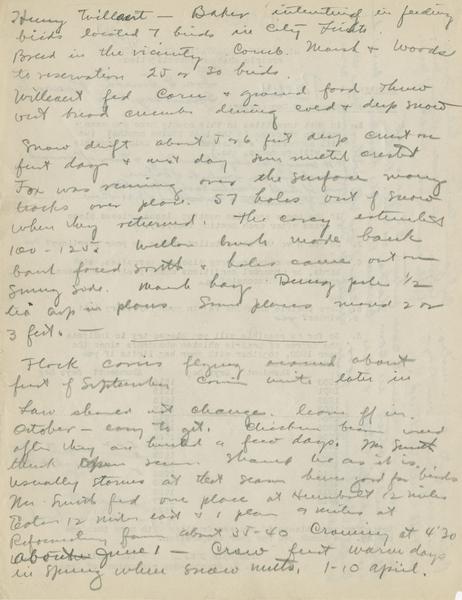 Henry Willeart — Baker interesting in feeding
birds located 7 birds in city limits.
Breed in the vicinity Comb. Marsh & Woods
to reservation 25 or 30 birds.
Willeart fed corn & ground food threw
out bread crumbs during cold & deep snow
Snow drift about 5 or 6 feet deep crust on
first day & next day sun melted crusted
Fox was running over the surface many
tracks over place. 57 holes out of snow
when they returned. The covey estimated
100 - 125. Willow brush made bank
bank faced south & holes came out on
sunny side. Marsh hay. Dung piles 1/2
tea cup in places. Some places moved 2 or
3 feet. —
Flock comes flying around about
first of September come until later in
Law should not change. leave off in
October — easy to get. Chicken been used
after they are hunted a few days. Mr. Smith
think open season. Should be as it is.
usually storms at that season being good for birds
Mr. Smith fed one place at Humbolt 12 miles
East 12 miles east & 1 place 9 miles at
Reformatory farm about 35-40 Crowing at 4:30
about June 1 — Crow first warm days
in Spring when snow melts, 1-10 April.